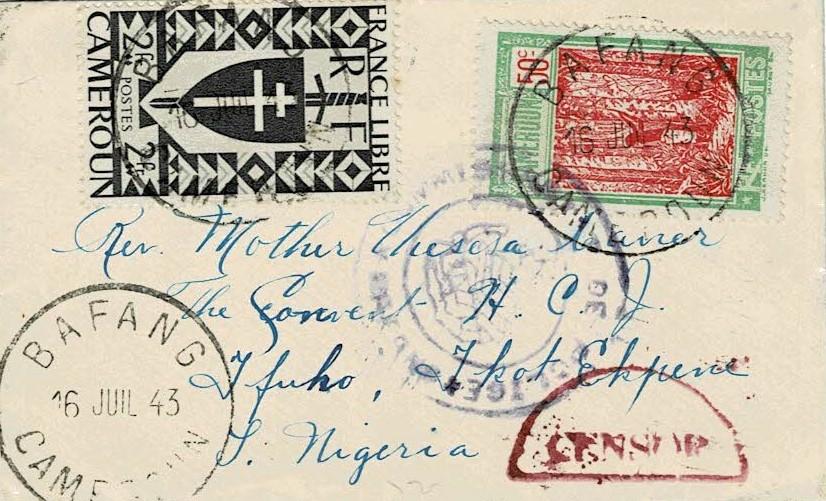 FRANCE LIBRE
RF
2F POSTES 2F
CAMEROUN
BAFANG
16 JUIL 43
CAMEROUN
50c
CAMEROUN
POSTES
BAFANG
16 JUIL 43
CAMEROUN
Rev. Mother Theresa
The Convent H. C. J.
Ifuho, Ikot Ekpene
S. Nigeria
BAFANG
16 JUIL 43
CAMEROUN
DE
CENSOR